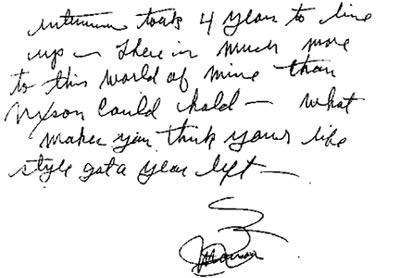 took 4 years to line
up — There is much more
to this world of mine than
Nixson could hold — what
makes you think yours life
style got a year left —